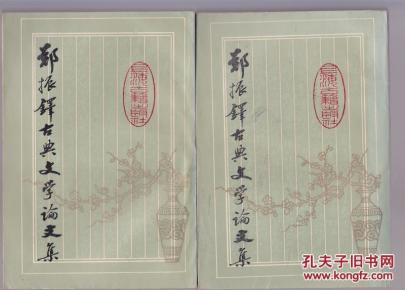 郑振铎古典文学论文集
上海古籍出版社
郑振铎古典文学论文集
上海古籍出版社
孔夫子旧书网
www.kongfz.com